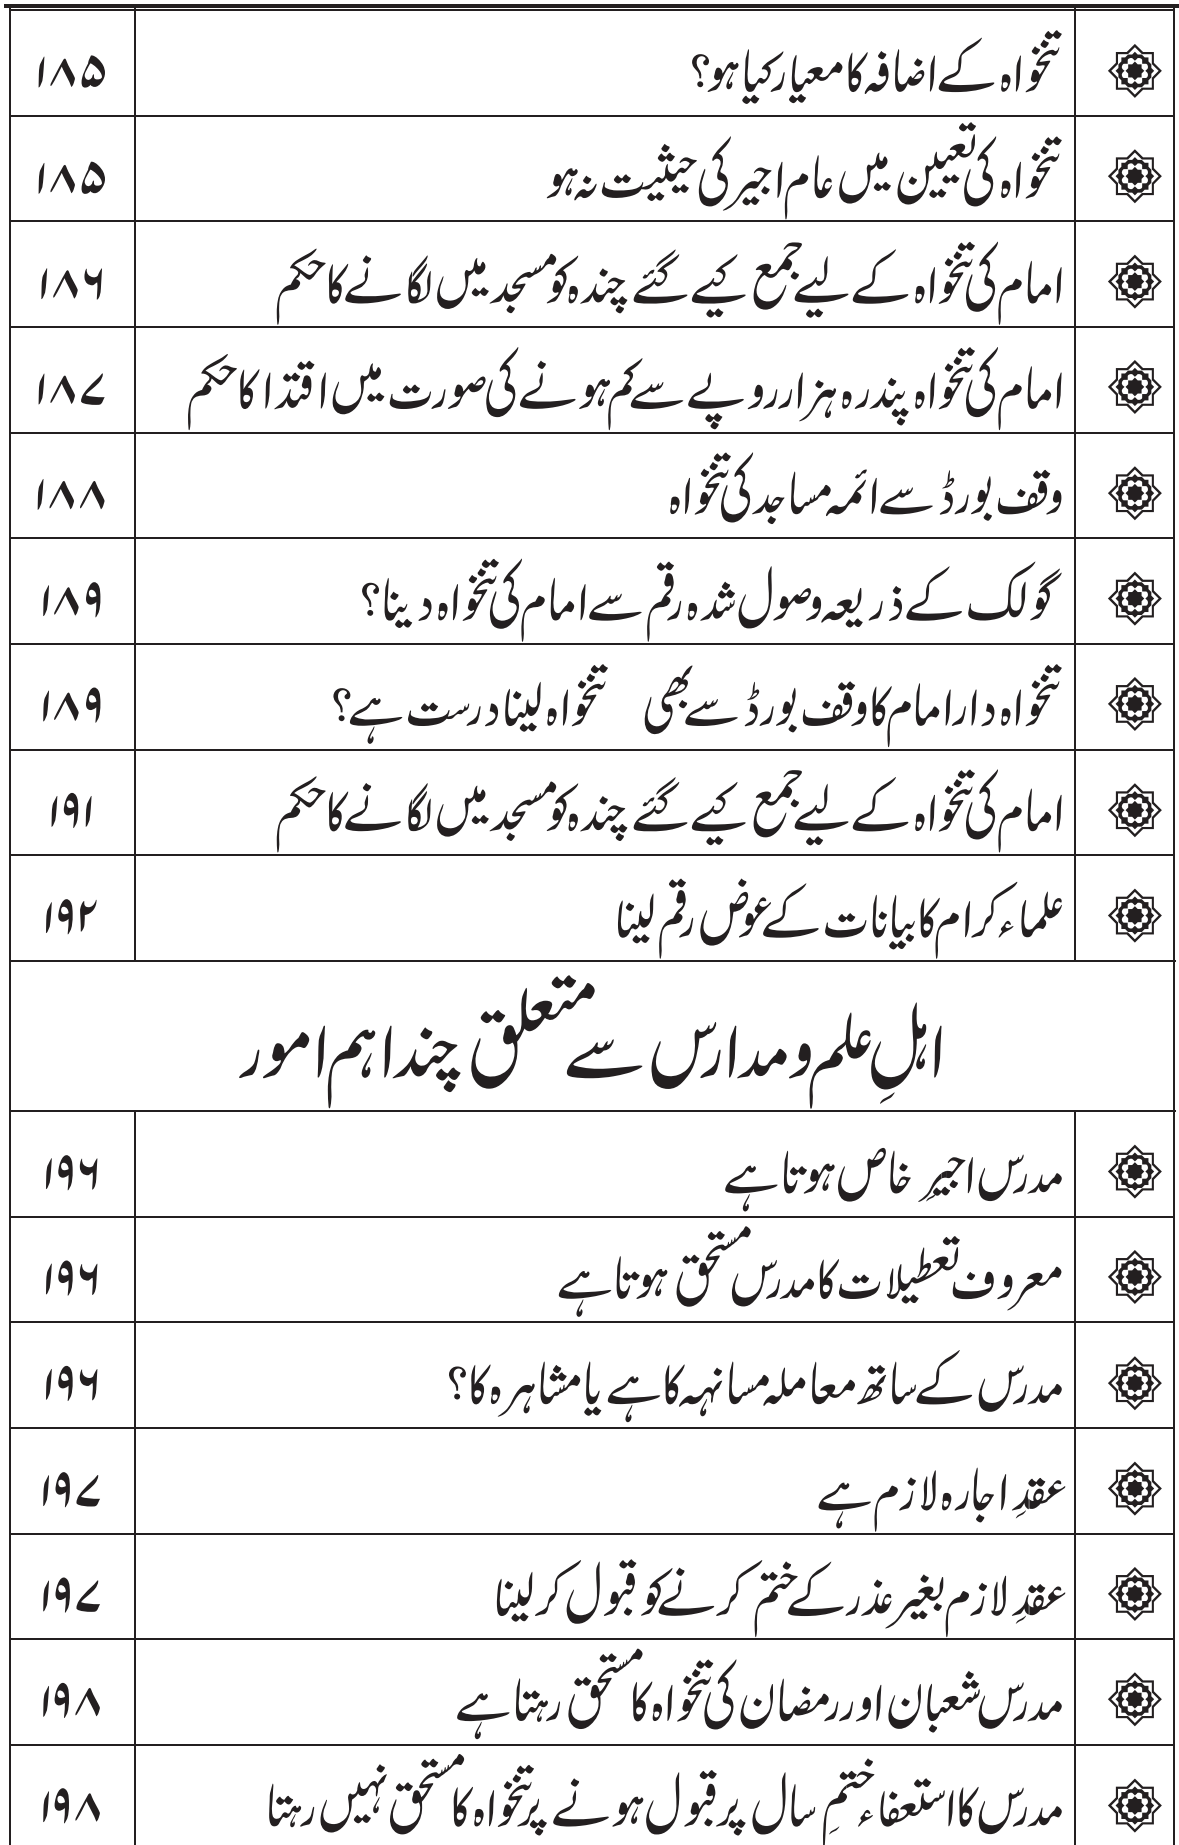 تنخواہ کے اضافہ کا معیار کیا ہو؟ ۱۸۵
تنخواہ کی تعیین میں عام اجیر کی حیثیت نہ ہو ۱۸۵
امام کی تنخواہ کے لیے جمع کیے گئے چندہ کو مسجد میں لگانے کا حکم ۱۸۶
امام کی تنخواہ پندرہ ہزار روپے سے کم ہونے کی صورت میں اقتدا کا حکم ۱۸۷
وقف بورڈ سے ائمہ مساجد کی تنخواہ ۱۸۸
گولک کے ذریعہ وصول شدہ رقم سے امام کی تنخواہ دینا؟ ۱۸۹
تنخواہ دار امام کا وقف بورڈ سے بھی تنخواہ لینا درست ہے؟ ۱۸۹
امام کی تنخواہ کے لیے جمع کیے گئے چندہ کو مسجد میں لگانے کا حکم ۱۹۱
علماء کرام کا بیانات کے عوض رقم لینا ۱۹۲
اہلِ علم و مدارس سے متعلق چند اہم امور
مدرّس اجیرِ خاص ہوتا ہے ۱۹۶
معروف تعطیلات کا مدرّس مستحق ہوتا ہے ۱۹۶
مدرّس کے ساتھ معاملہ مسانہہ کا ہے یا مشاہرہ کا؟ ۱۹۶
عقدِ اجارہ لازم ہے ۱۹۷
عقدِ لازم بغیر عذر کے ختم کرنے کو قبول کر لینا ۱۹۷
مدرّس شعبان اور رمضان کی تنخواہ کا مستحق رہتا ہے ۱۹۸
مدرّس کا استعفاء ختمِ سال پر قبول ہونے پر تنخواہ کا مستحق نہیں رہتا ۱۹۸